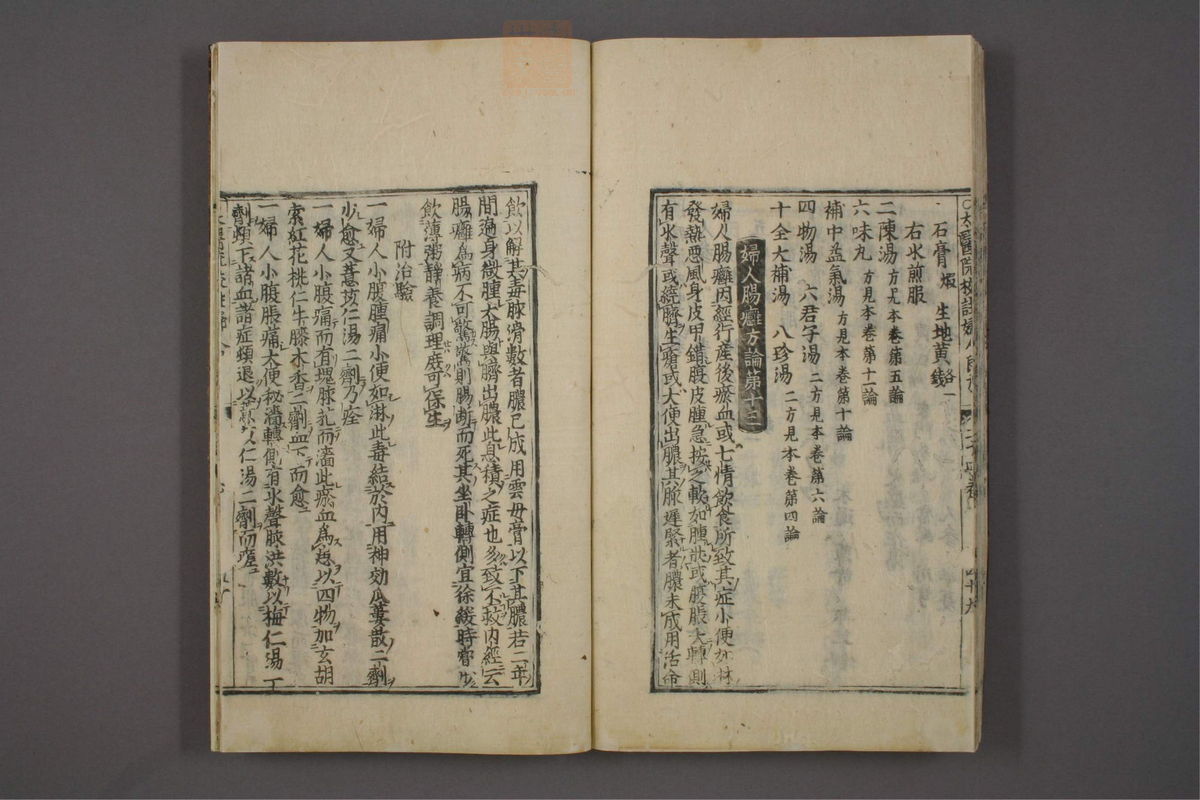 石膏煅 生地黄各一錢
右水煎服
二陳湯方見本卷第五論
六味丸方見本卷第十一論
補中益氣湯方見本卷第十論
四物湯 六君子湯二方見本卷第六論
十全大補湯 八珍湯二方見本卷第四論
婦人腸癰方論第十三
婦人腸癰因經行産後瘀血或七情飲食所致其症小便如淋
發熱惡風身皮甲錯腹皮腫急按之軟如腫狀或腹脹大轉側
有水聲或繞臍生瘡或大便出膿其脉遲緊者膿未成用活命
飲以解其毒脉滑數者膿已成用雲母膏以下其膿若二年
間遍身微腫大腸與臍出膿此息積之症也多致不救内經云
腸癰爲病不可驚驚則腸斷而死其坐卧轉側宜徐緩時嘗少
飲薄粥静養調理庶可保生
附治驗
一婦人小腹腫痛小便如淋此毒結於内用神効瓜蔞散二劑
少愈又薏苡仁湯二劑乃痊
一婦人小腹痛而有塊脉芤而濇此瘀血爲患以四物加玄胡
索紅花桃仁牛膝木香二劑血下而愈
一婦人小腹脹痛大便秘濇轉側有水聲脉洪數以梅仁湯一
劑頓下諸血諸症頓退以薏苡仁湯二劑而瘥